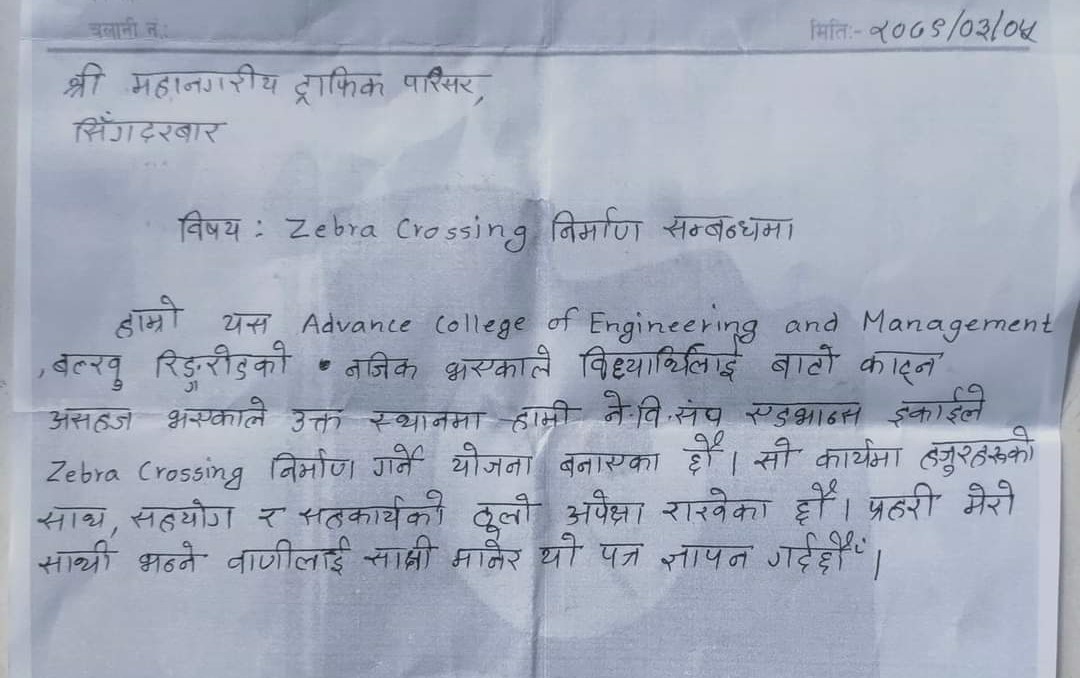 चलानी नं.:
मिति:- २०७९/०३/०५
श्री महानगरीय ट्राफिक परिसर,
सिँगदरबार
विषय : Zebra Crossing निर्माण सम्बन्धमा
हाम्रो यस Advance College of Engineering and Management
, बल्खु रिङ्गरोडको नजिक भएकाले विद्यार्थिलाई बाटो काट्न
असहज भएकाले उक्त स्थानमा हामी ने.वि.संघ एडभान्स इकाईले
Zebra Crossing निर्माण गर्ने योजना बनाएका छौं । सो कार्यमा हजुरहरूको
साथ, सहयोग र सहकार्यको ठूलो अपेक्षा राखेका छौं । प्रहरी मेरो
साथी भन्ने वाणीलाई साक्षी मानेर यो पत्र ज्ञापन गर्दछौं ।